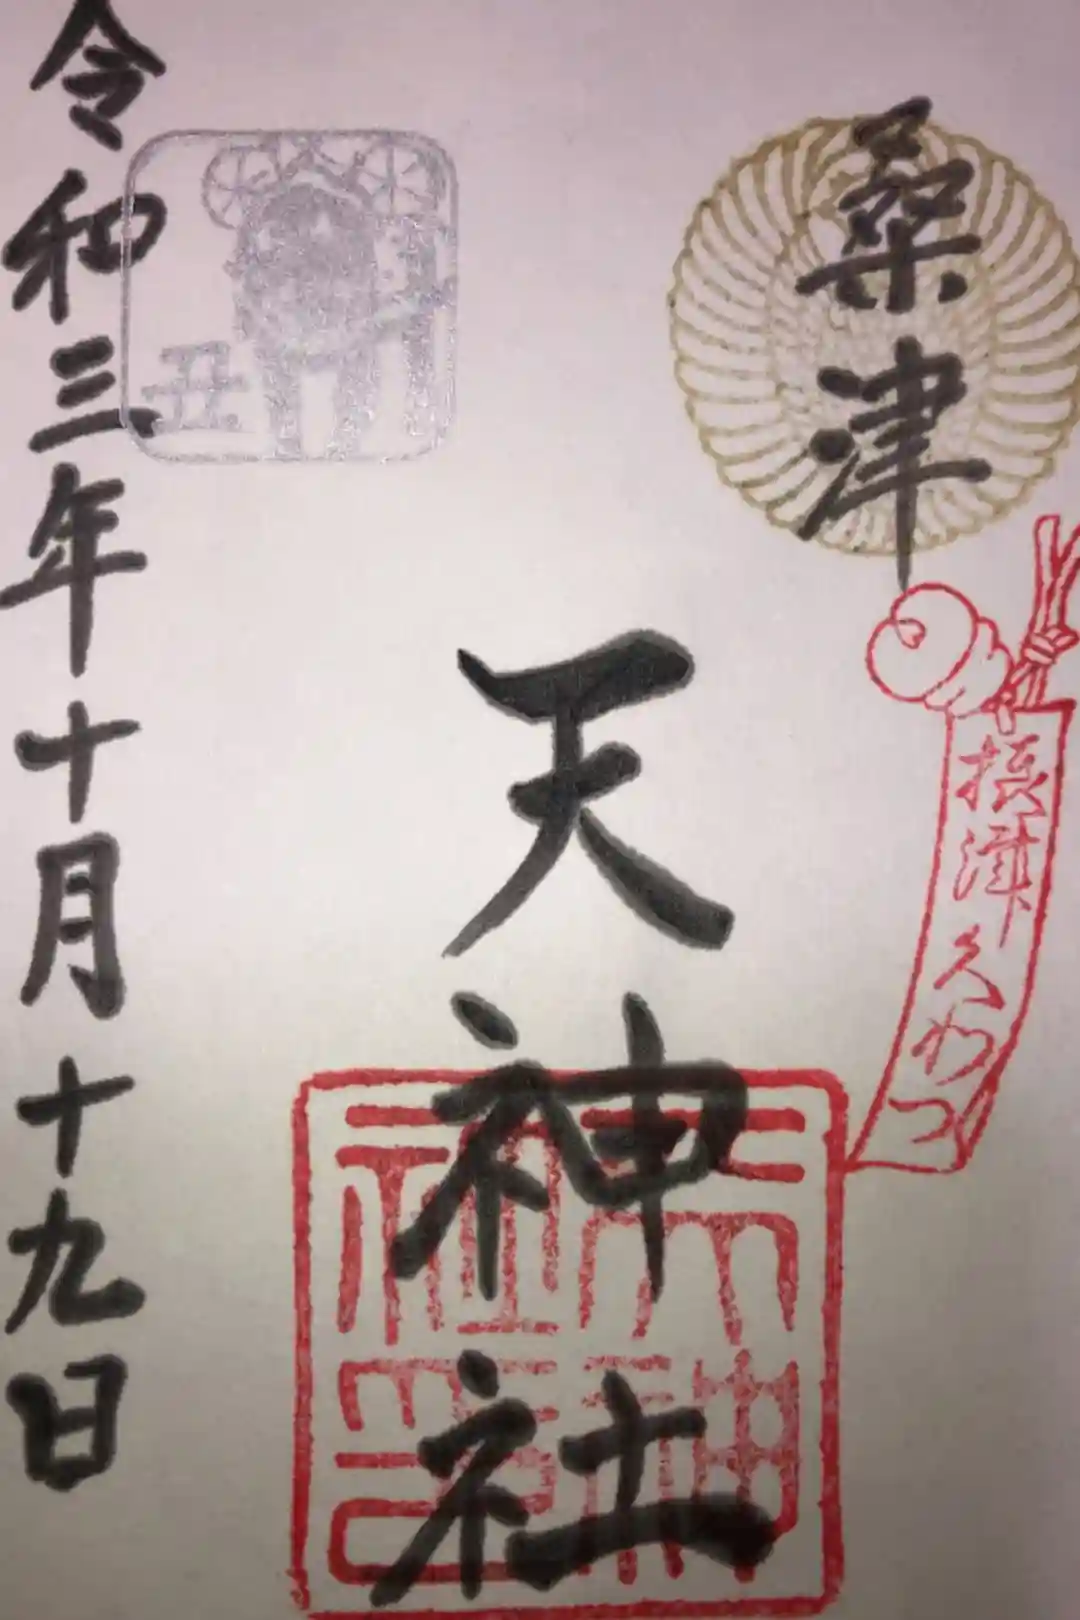 桑津
摂津
くわつ
天神社
天神社印
丑
令和三年十月十九日